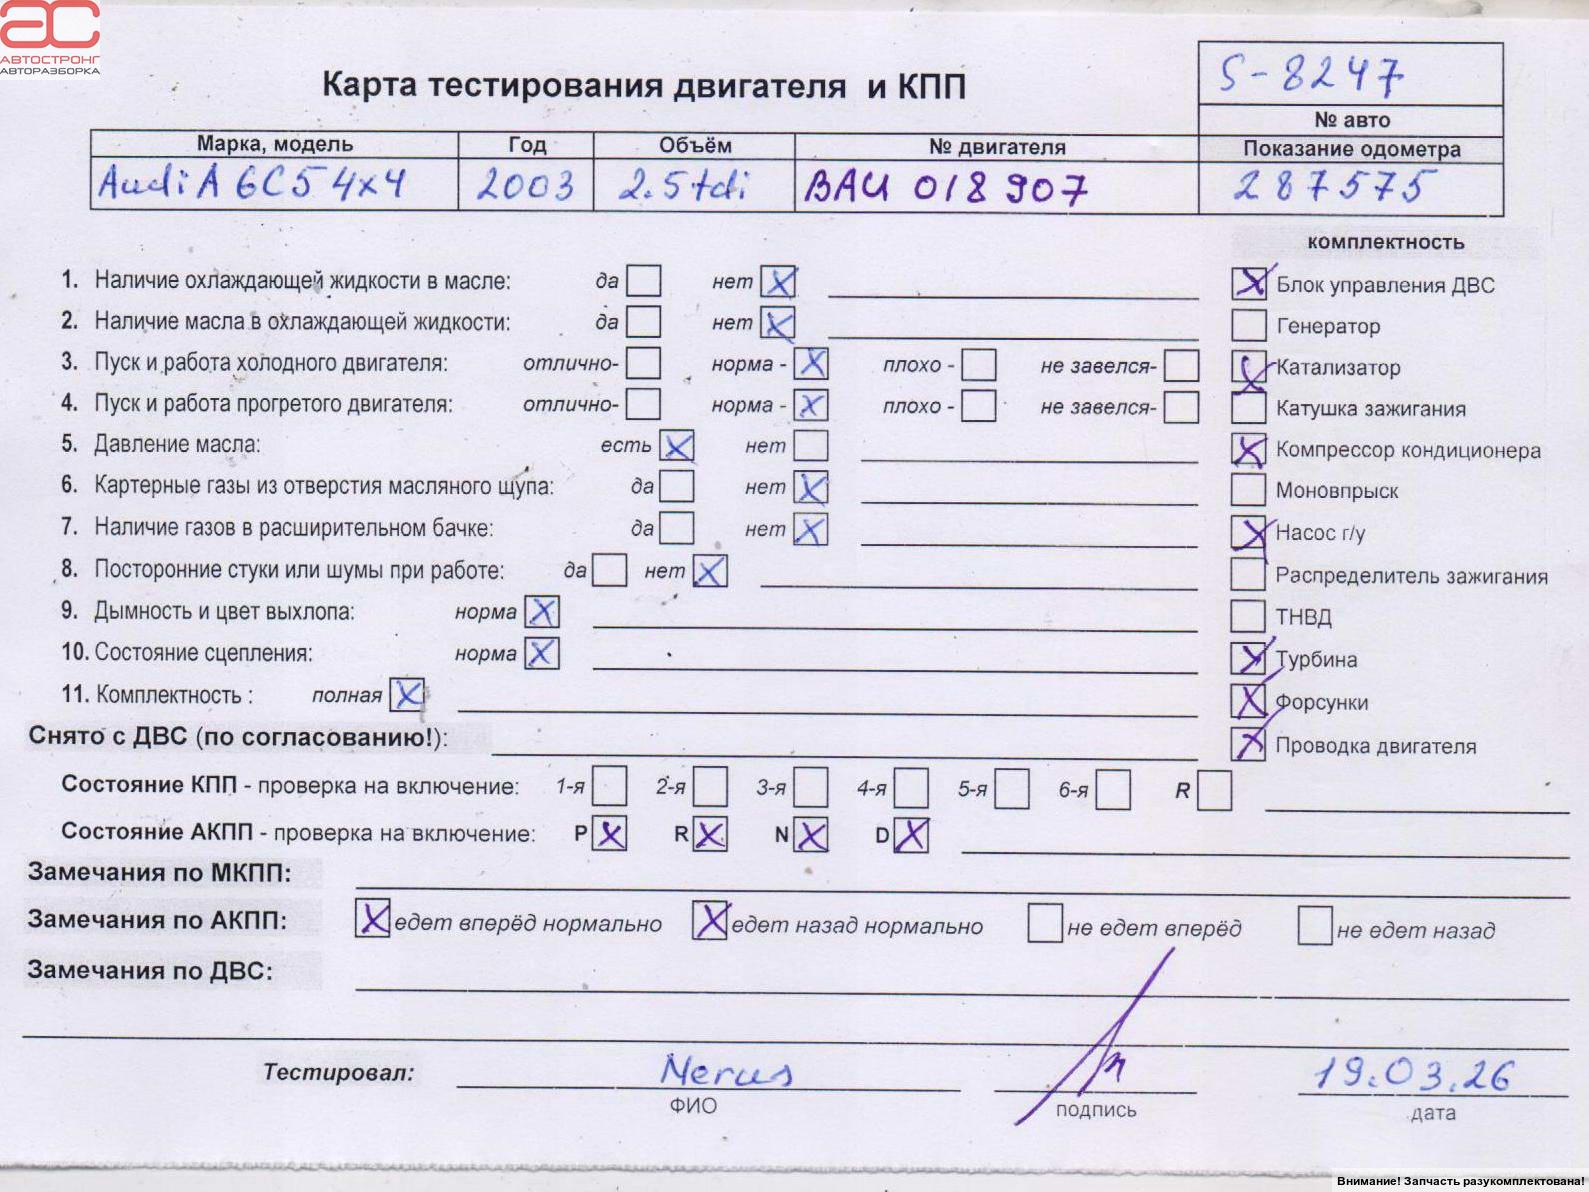 АС
АВТОСТРОНГ
АВТОРАЗБОРКА
Карта тестирования двигателя и КПП
S-8247
№ авто
Марка, модель Год Объём № двигателя Показание одометра
Audi A6C5 4x4 2003 2.5tdi BAU 018907 287575
комплектность
1. Наличие охлаждающей жидкости в масле: да нет X
X Блок управления ДВС
2. Наличие масла в охлаждающей жидкости: да нет X
Генератор
3. Пуск и работа холодного двигателя: отлично- норма - X плохо - не завелся-
Катализатор
4. Пуск и работа прогретого двигателя: отлично- норма - X плохо - не завелся-
Катушка зажигания
5. Давление масла: есть X нет
X Компрессор кондиционера
6. Картерные газы из отверстия масляного щупа: да нет X
Моновпрыск
7. Наличие газов в расширительном бачке: да нет X
X Насос г/у
8. Посторонние стуки или шумы при работе: да нет X
Распределитель зажигания
9. Дымность и цвет выхлопа: норма X
ТНВД
10. Состояние сцепления: норма X
X Турбина
11. Комплектность : полная X
X Форсунки
Снято с ДВС (по согласованию!):
X Проводка двигателя
Состояние КПП - проверка на включение: 1-я 2-я 3-я 4-я 5-я 6-я R
Состояние АКПП - проверка на включение: P X R X N X D X
Замечания по МКПП:
Замечания по АКПП: X едет вперёд нормально X едет назад нормально не едет вперёд не едет назад
Замечания по ДВС:
Тестировал: Nerus 19.03.26
ФИО подпись дата
Внимание! Запчасть разукомплектована!